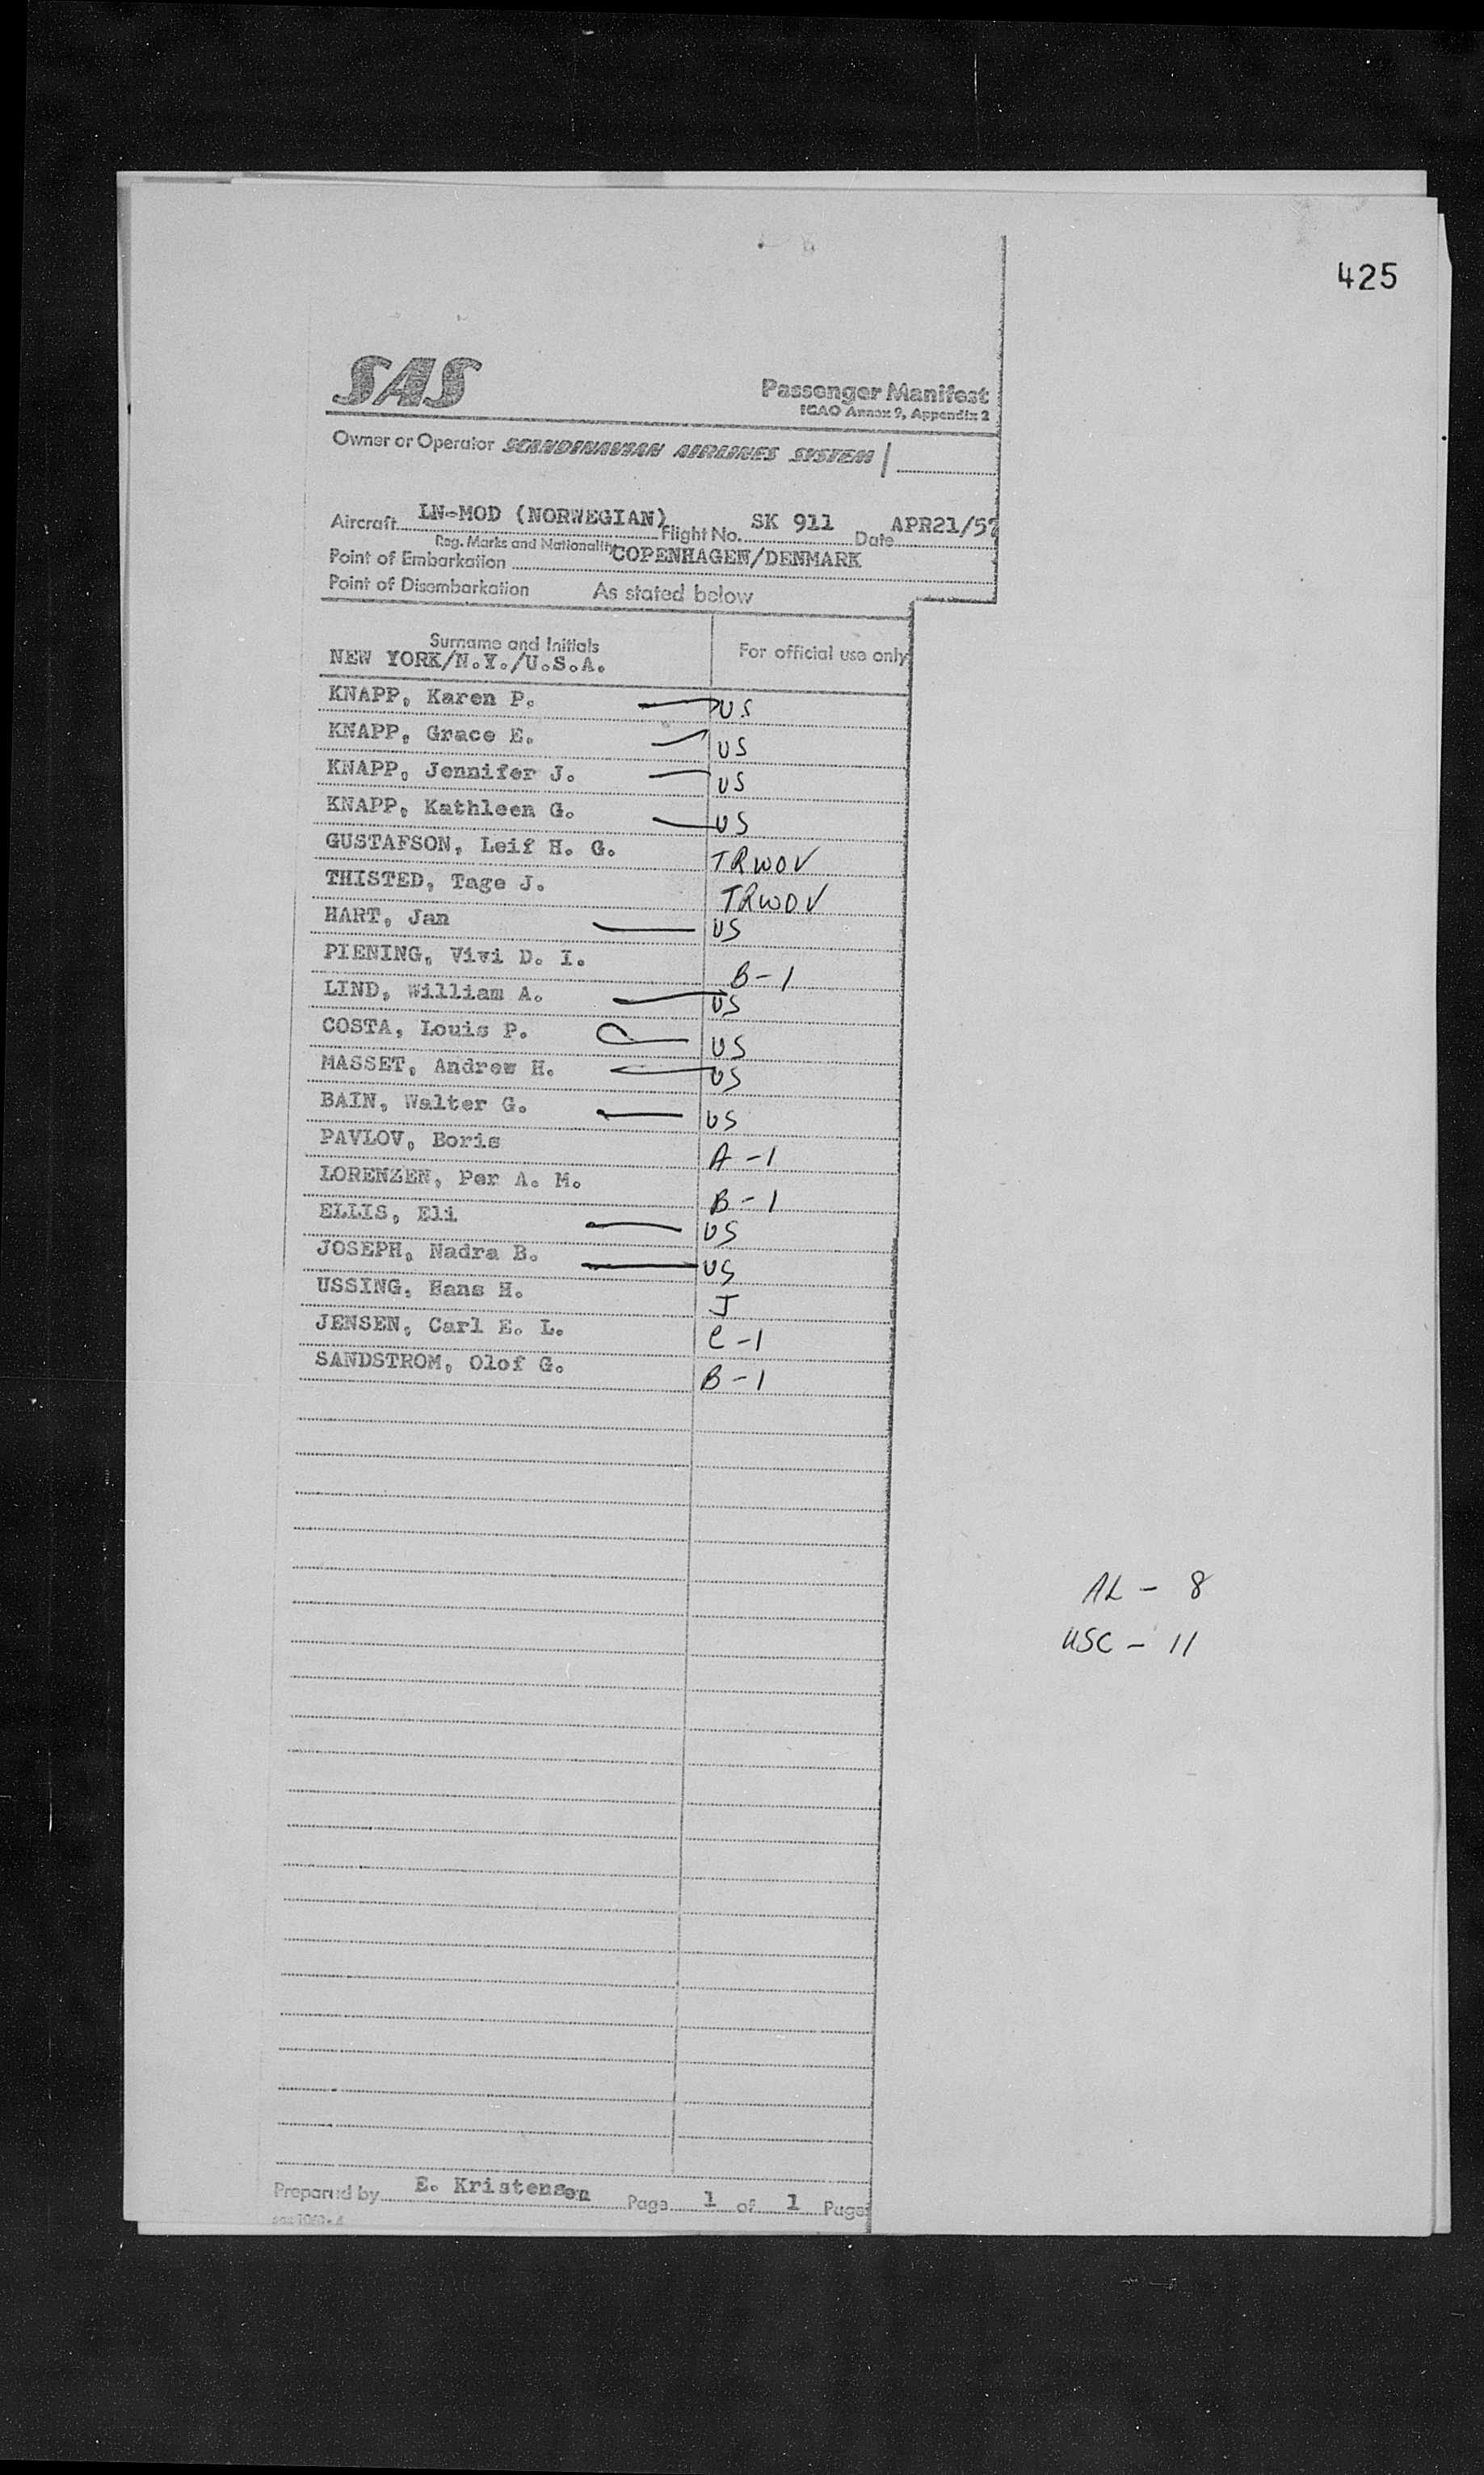 425
SAS
Passenger Manifest
ICAO Annex 9, Appendix 2
Owner or Operator SCANDINAVIAN AIRLINES SYSTEM
Aircraft LN-MOD (NORWEGIAN) Flight No. SK 911 Date APR21/57
Reg. Marks and Nationality
Point of Embarkation COPENHAGEN/DENMARK
Point of Disembarkation As stated below
Surname and Initials For official use only
NEW YORK/N.Y./U.S.A.
KNAPP, Karen P. US
KNAPP, Grace E. US
KNAPP, Jennifer J. US
KNAPP, Kathleen G. US
GUSTAFSON, Leif H. G. TRWOV
THISTED, Tage J. TRWOV
HART, Jan US
PIENING, Vivi D. I. B-1
LIND, William A. US
COSTA, Louis P. US
MASSET, Andrew H. US
BAIN, Walter G. US
PAVLOV, Boris A-1
LORENZEN, Per A. M. B-1
ELLIS, Eli US
JOSEPH, Nadra B. US
USSING, Hans H. J
JENSEN, Carl E. L. C-1
SANDSTROM, Olof G. B-1
AL - 8
USC - 11
Prepared by E. Kristensen Page 1 of 1 Pages